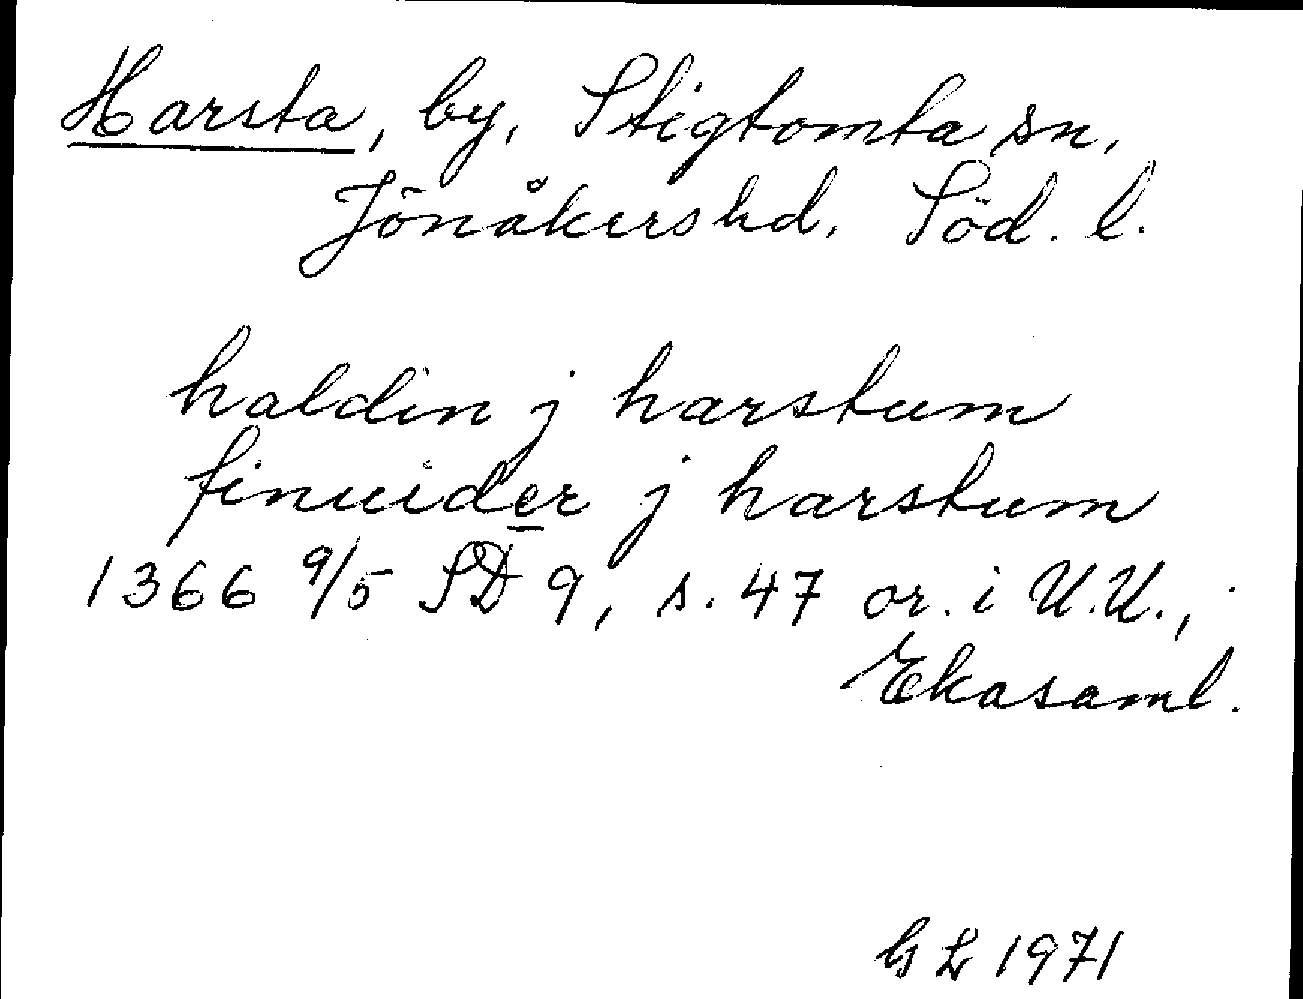 Harsta, by, Stigtomta sn,
Jönåkers hd. Söd. l.
haldin j harstum
finuider j harstum
1366 9/5 SD 9, s. 47 or. i U.U.,
Ekasaml.
GL 1971